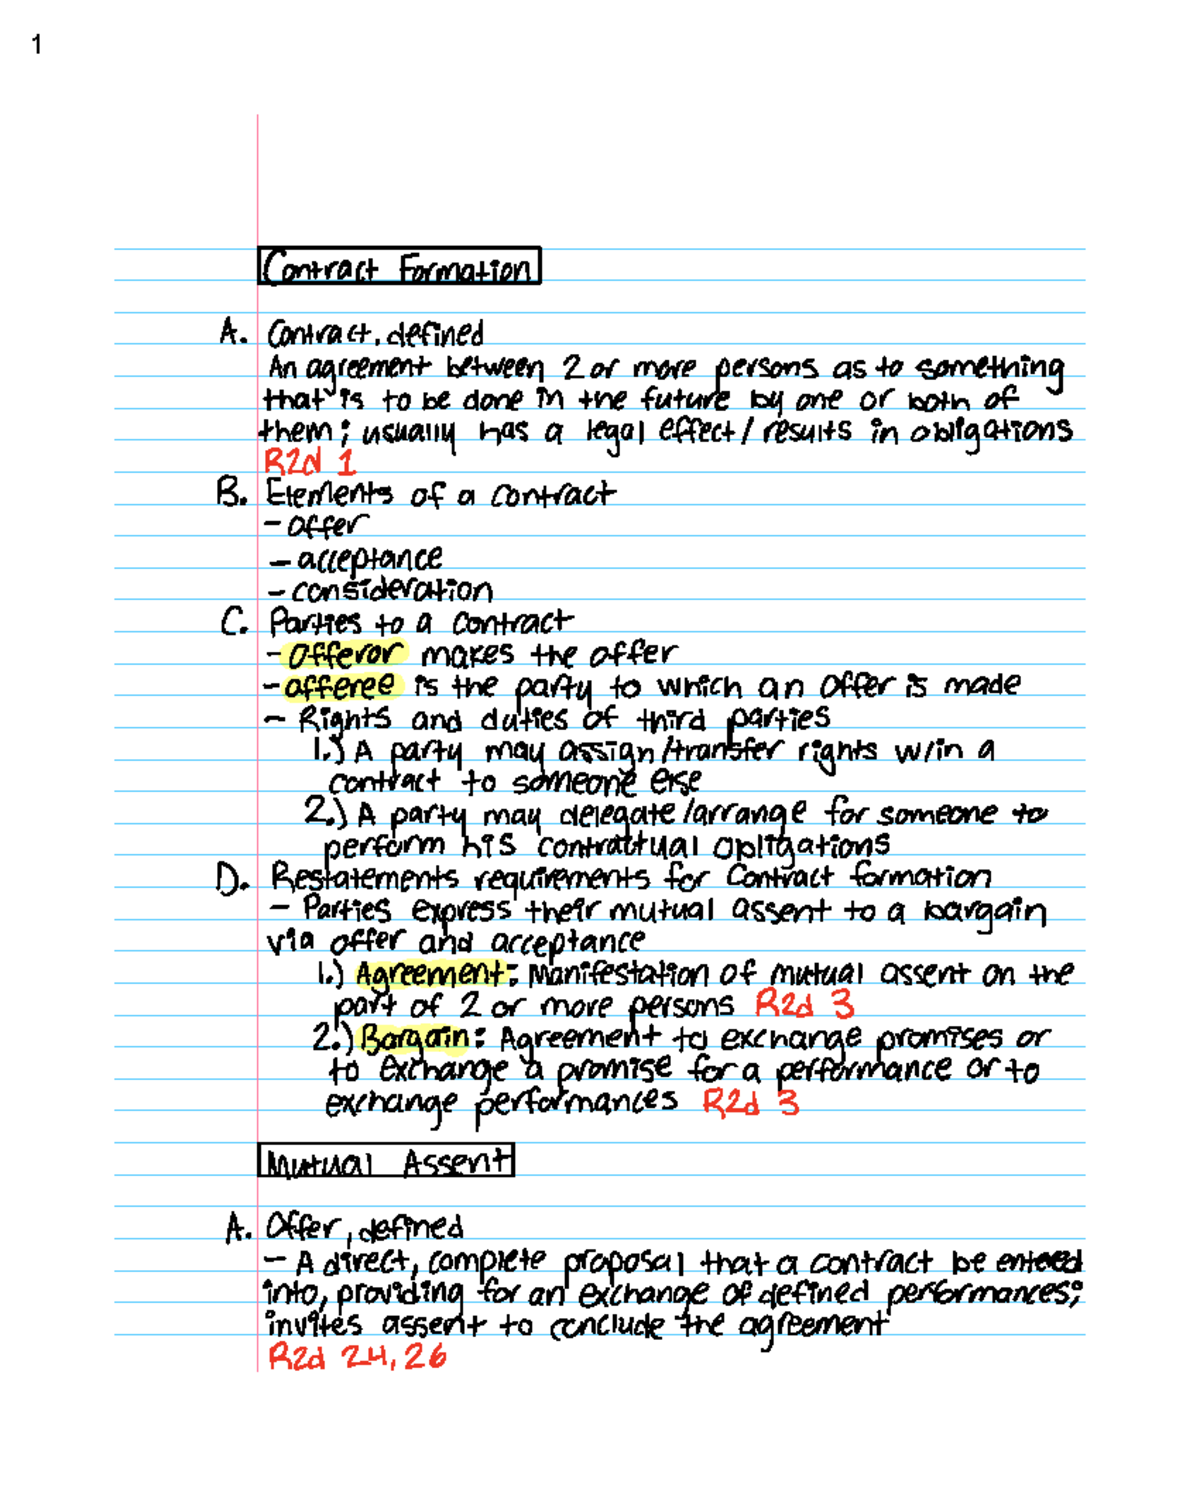 1
Contract Formation
A. Contract, defined
An agreement between 2 or more persons as to something
that is to be done in the future by one or both of
them; usually has a legal effect/results in obligations
R2d 1
B. Elements of a contract
- offer
- acceptance
- consideration
C. Parties to a contract
- Offeror makes the offer
- offeree is the party to which an offer is made
- Rights and duties of third parties
1.) A party may assign/transfer rights w/in a
contract to someone else
2.) A party may delegate/arrange for someone to
perform his contractual obligations
D. Restatements requirements for Contract formation
- Parties express their mutual assent to a bargain
via offer and acceptance
1.) Agreement: Manifestation of mutual assent on the
part of 2 or more persons R2d 3
2.) Bargain: Agreement to exchange promises or
to exchange a promise for a performance or to
exchange performances R2d 3
Mutual Assent
A. Offer, defined
- A direct, complete proposal that a contract be entered
into, providing for an exchange of defined performances;
invites assent to conclude the agreement
R2d 24, 26